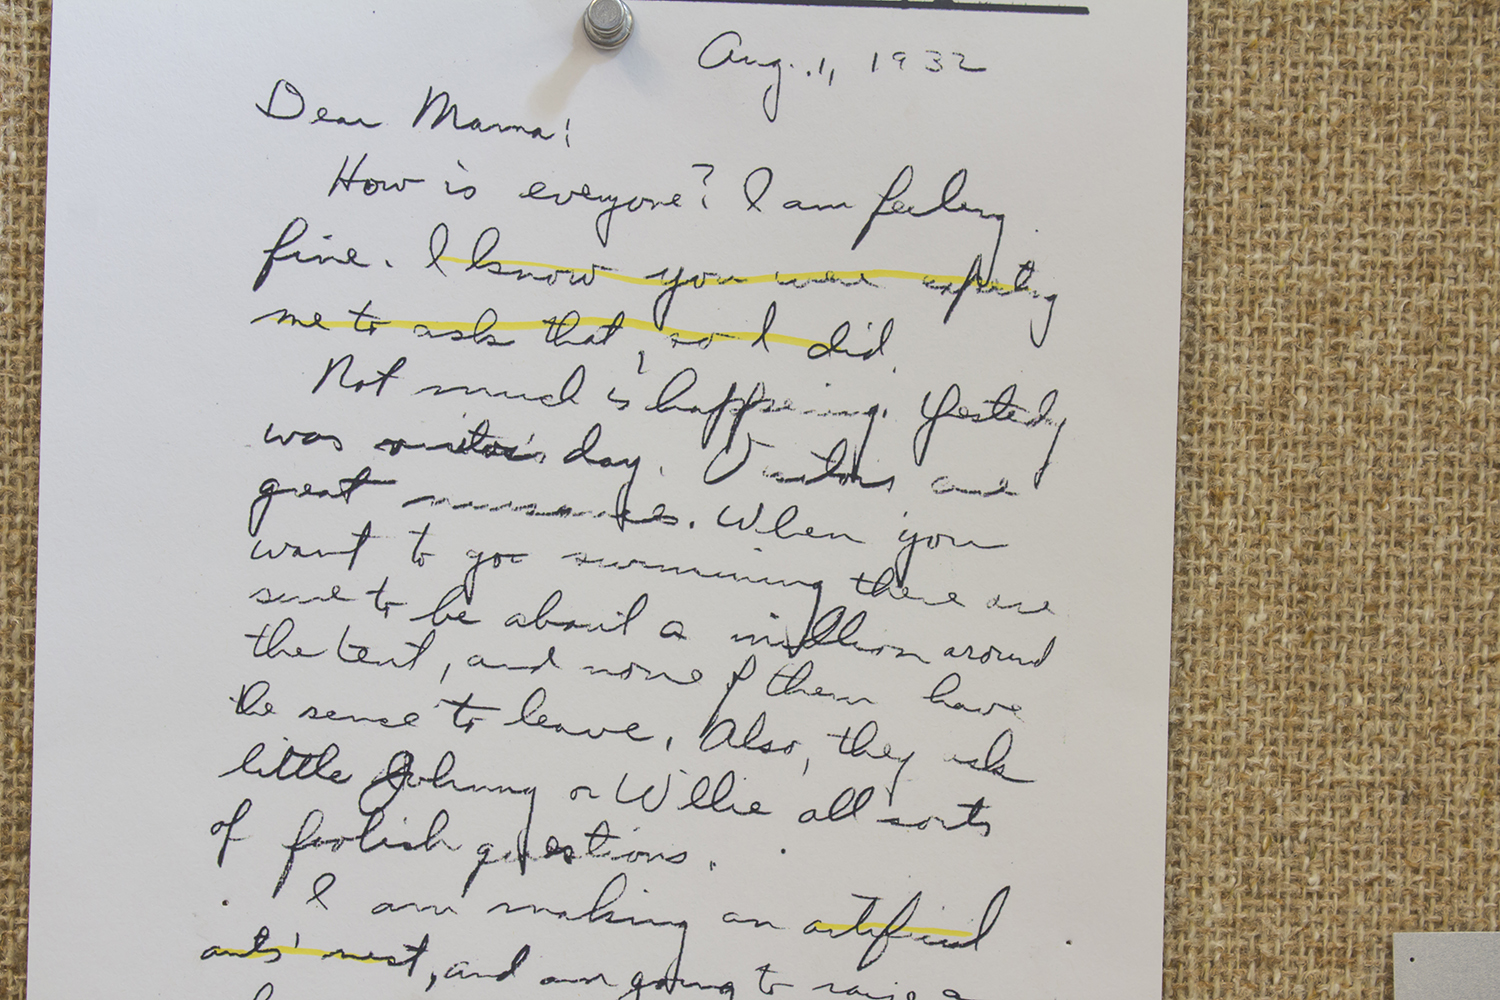 Aug. 1, 1932
Dear Mama:
How is everyone? I am feeling
fine. I know you were expecting
me to ask that, so I did.
Not much is happening. Yesterday
was visitor's day. Visitors are
great nuisances. When you
want to go swimming there are
sure to be about a million around
the tent, and none of them have
the sense to leave. Also, they ask
little Johnny or Willie all sorts
of foolish questions.
I am making an artificial
ants' nest, and am going to raise a